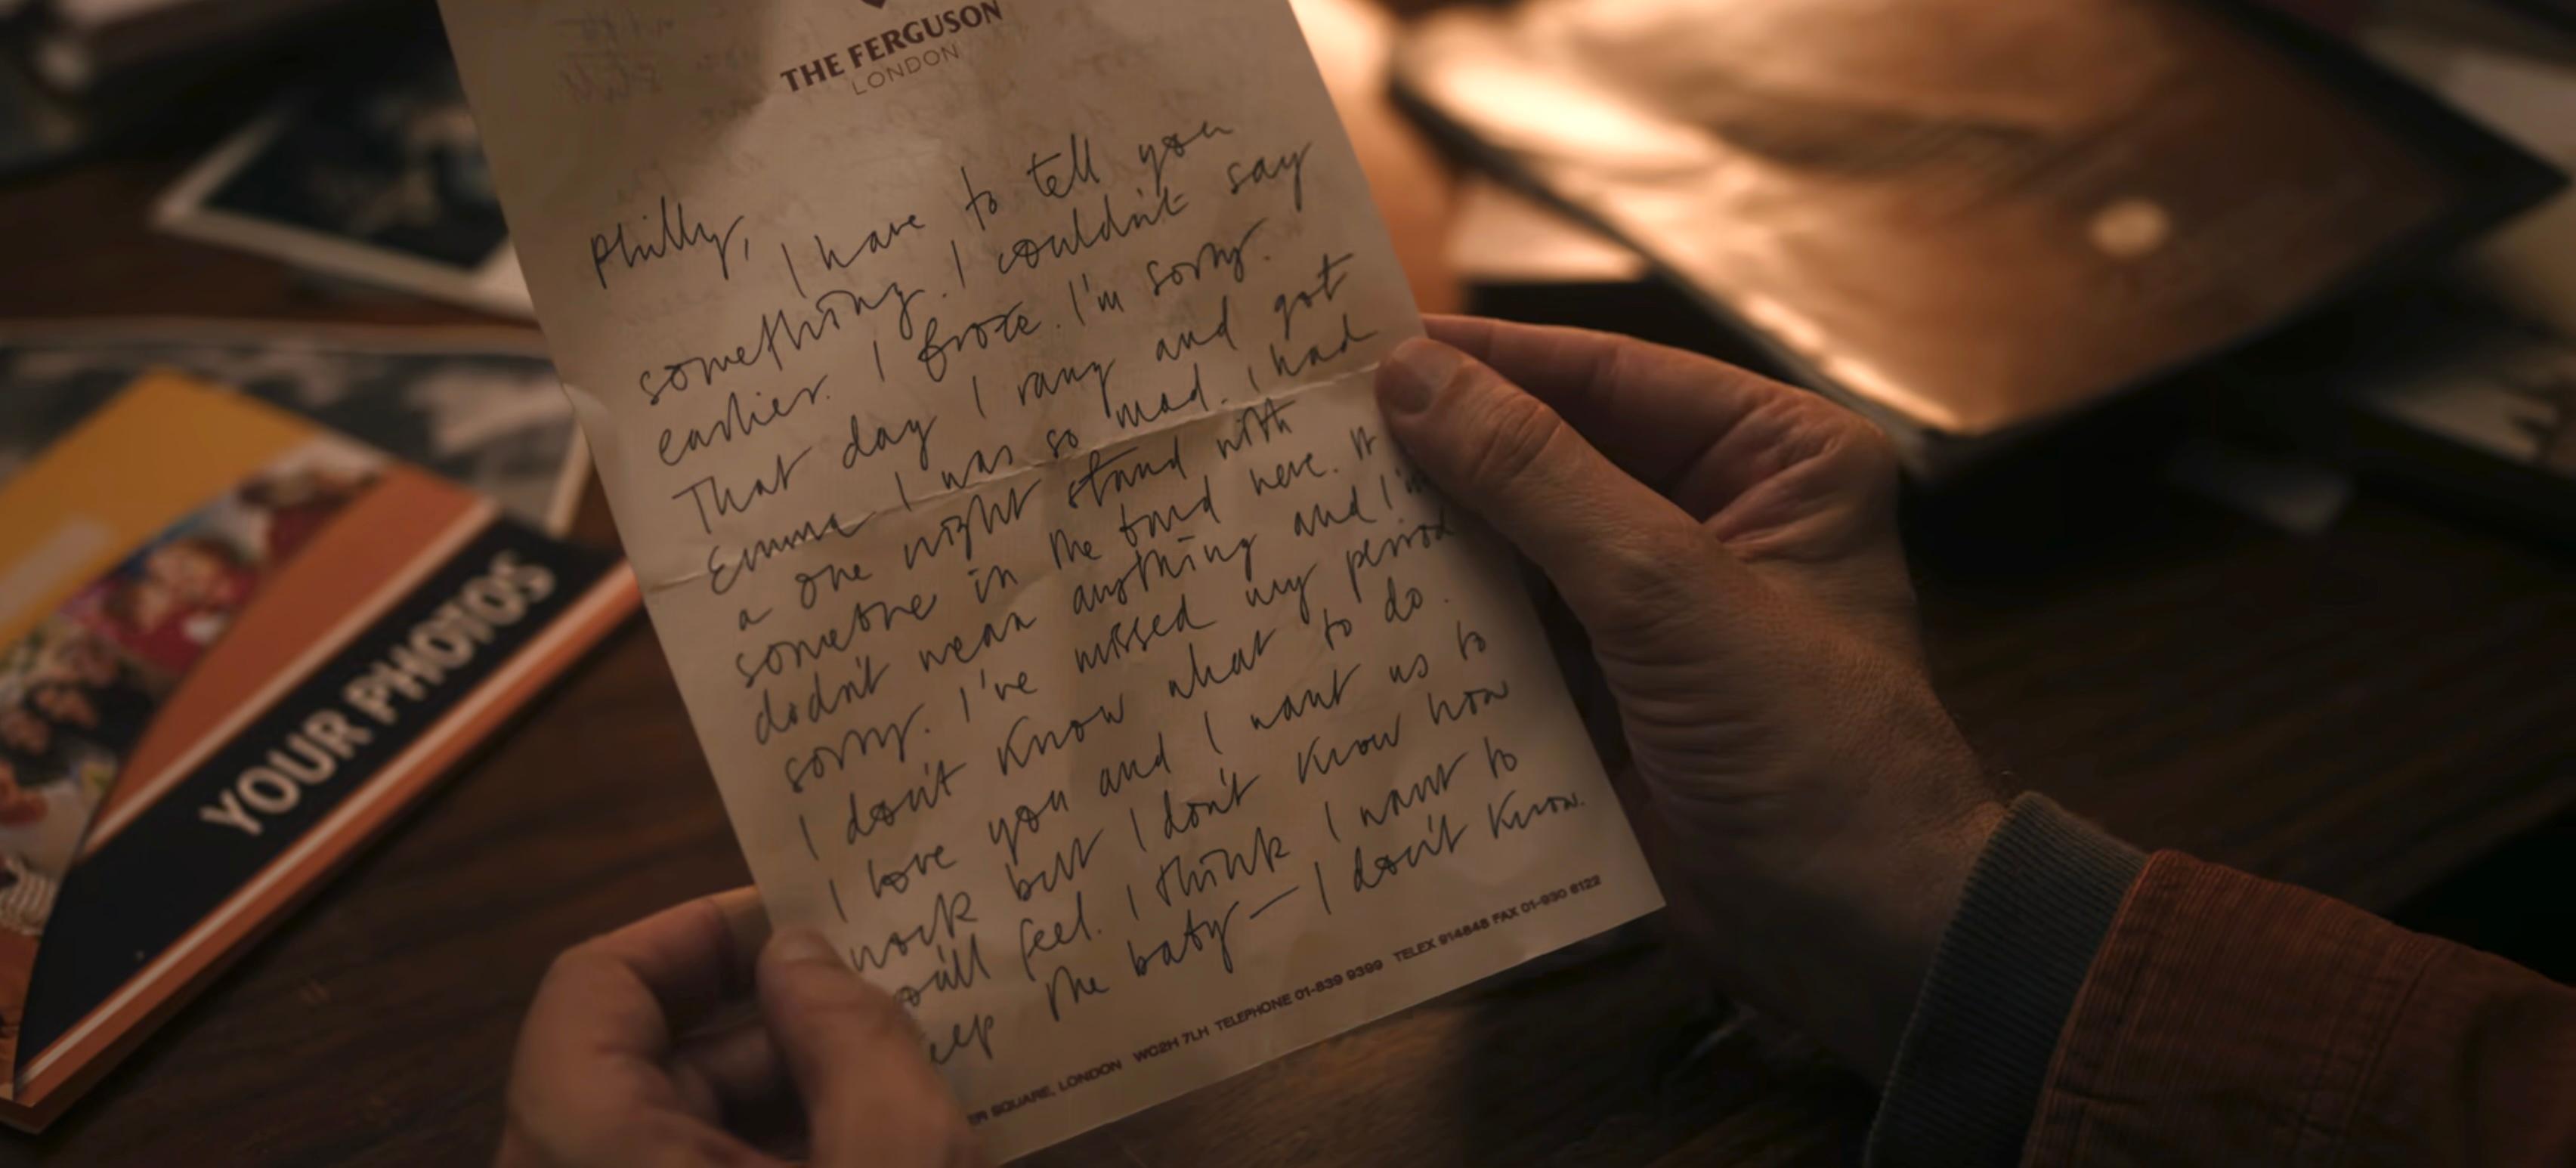 THE FERGUSON
LONDON
Philly, I have to tell you
something. I couldn't say
earlier. I froze. I'm sorry.
That day I rang and got
Emma I was so mad. I had
a one night stand with
someone in the band here. It
didn't mean anything and I'm
sorry. I've missed my period
I don't know what to do.
I love you and I want us to
work but I don't know how
you'll feel. I think I want to
keep the baby — I don't know.
SQUARE, LONDON WC2H 7LH TELEPHONE 01-839 9399 TELEX 914848 FAX 01-930 8122
YOUR PHOTOS